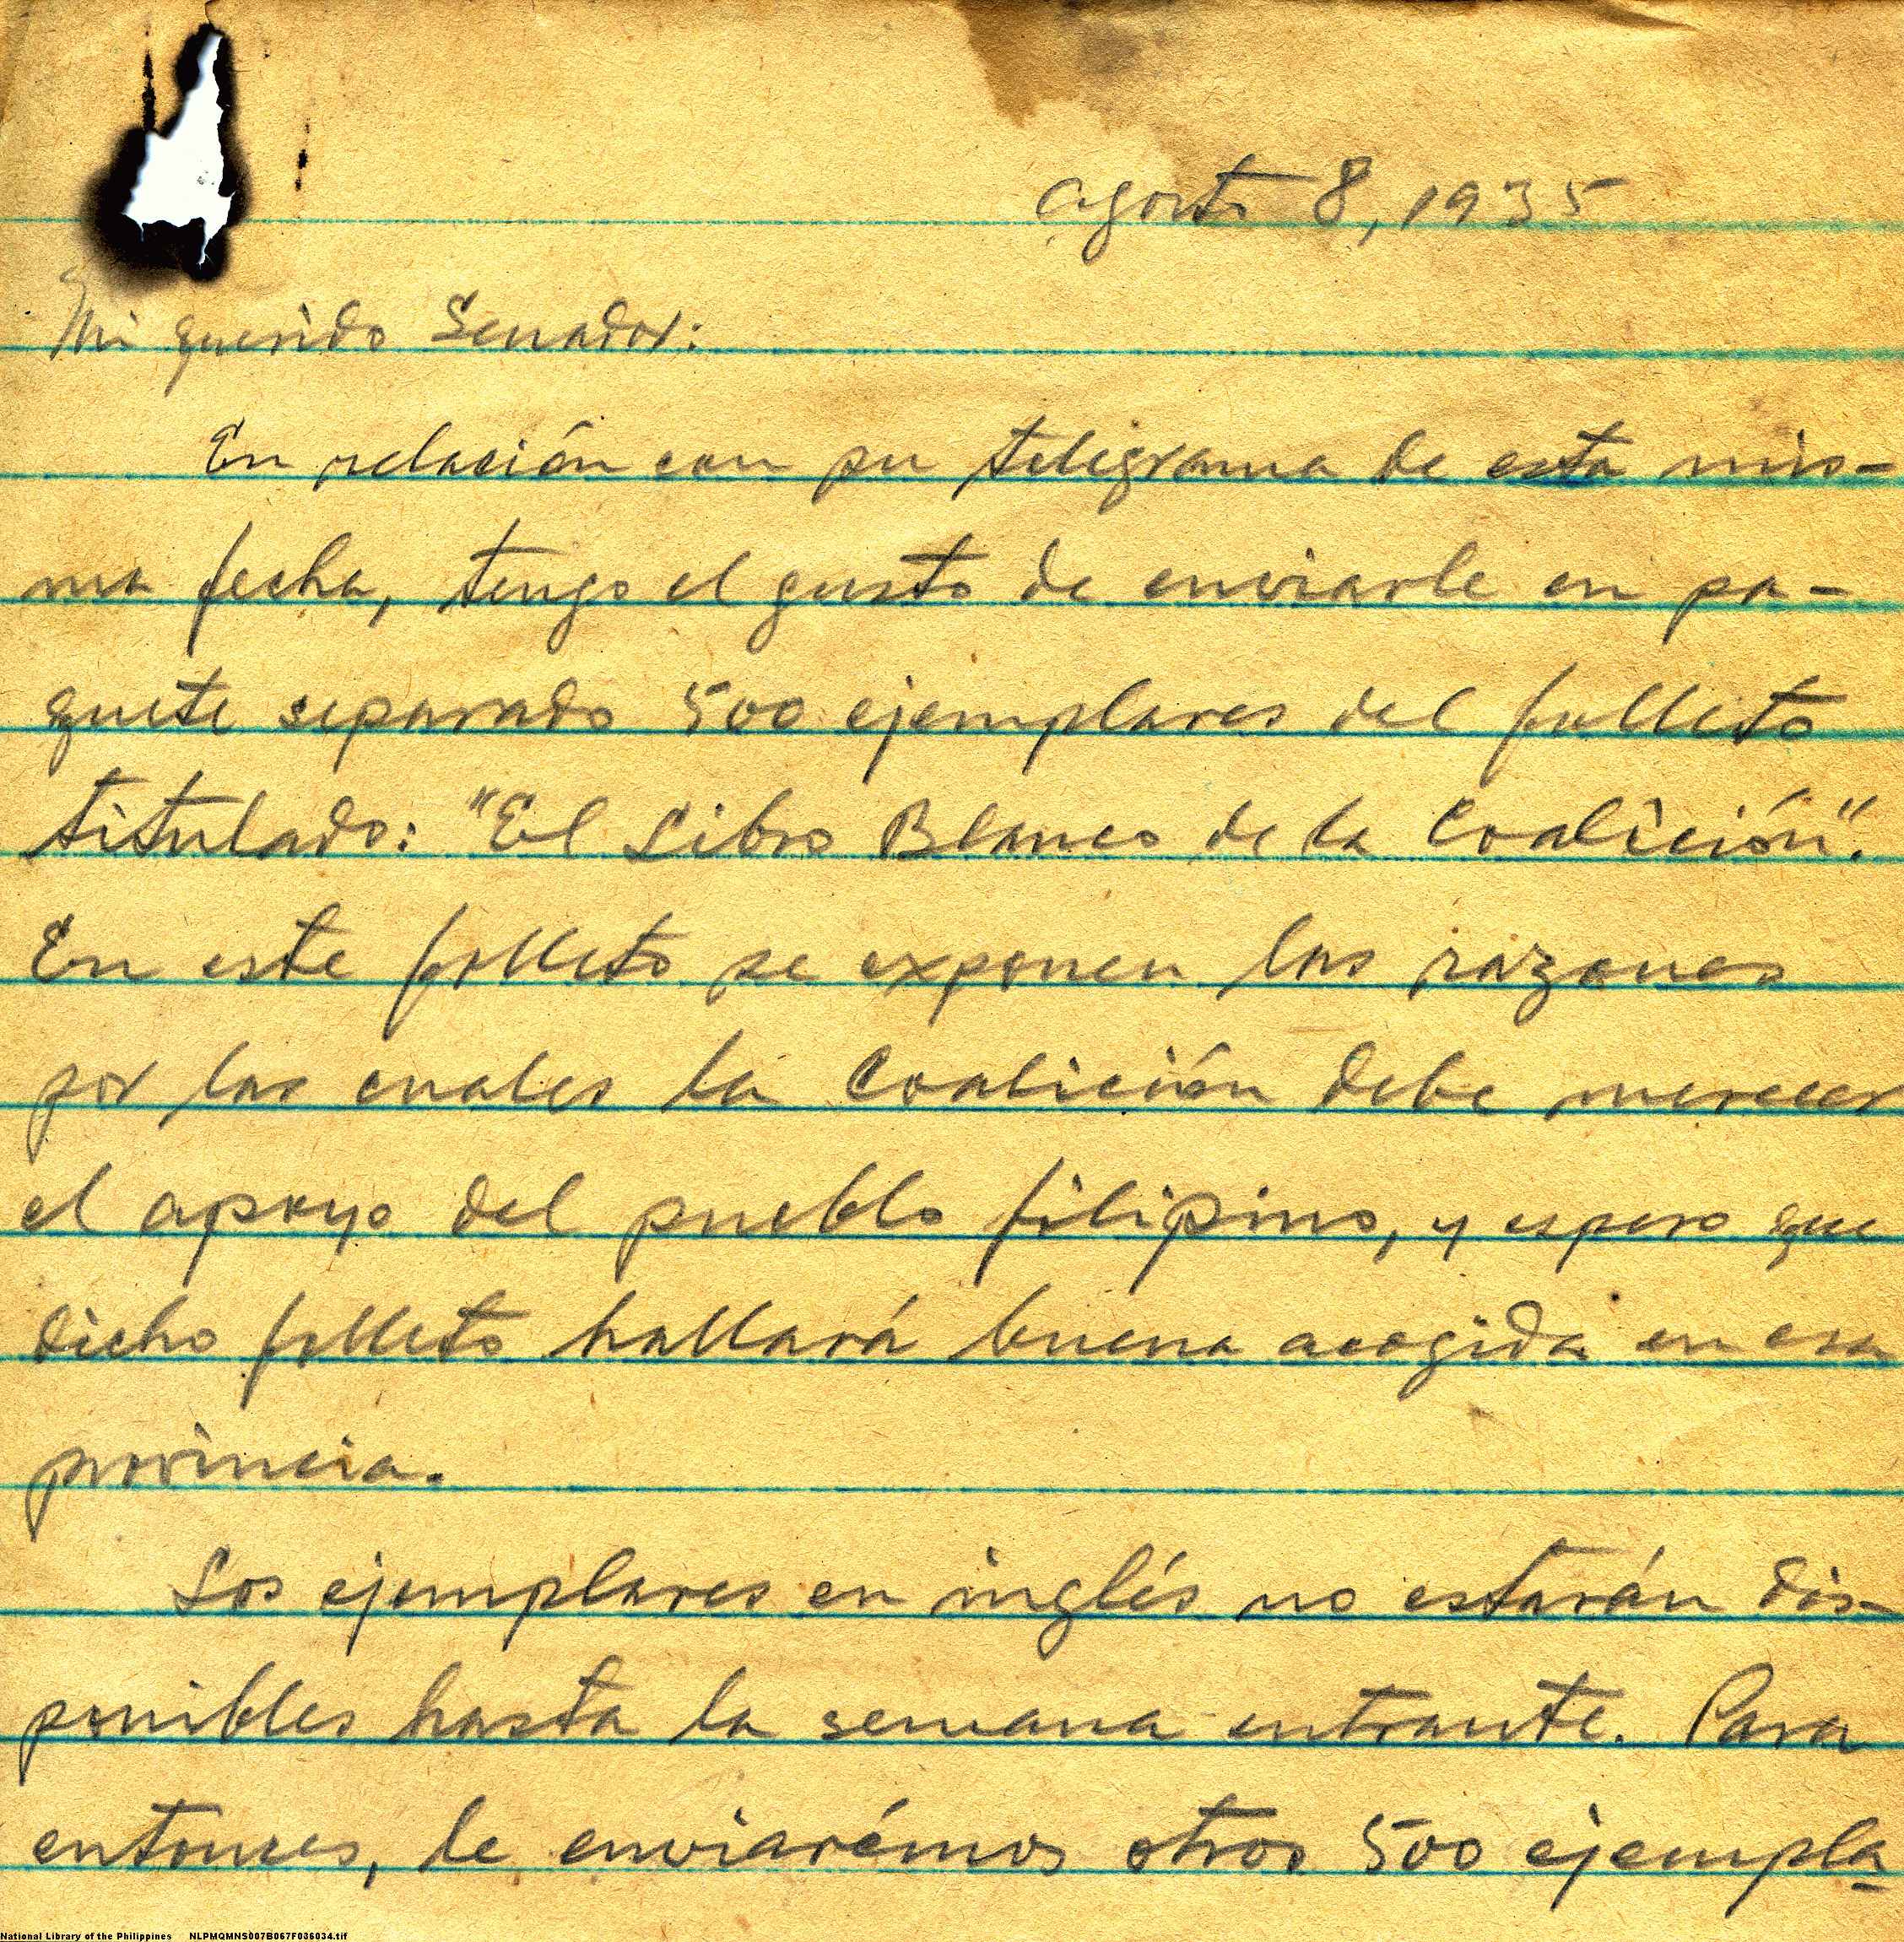 agosto 8, 1935
Mi querido Senador:
En relación con su telegrama de esta mis-
ma fecha, tengo el gusto de enviarle en pa-
quete separado 500 ejemplares del folleto
titulado: "El Libro Blanco de la Coalición".
En este folleto se exponen las razones
por las cuales la Coalición debe merecer
el apoyo del pueblo filipino, y espero que
dicho folleto hallará buena acogida en esa
provincia.
Los ejemplares en inglés no estarán dis-
ponibles hasta la semana entrante. Para
entonces, le enviarémos otros 500 ejempla-
National Library of the Philippines NLPMQMNS007B067F036034.tif